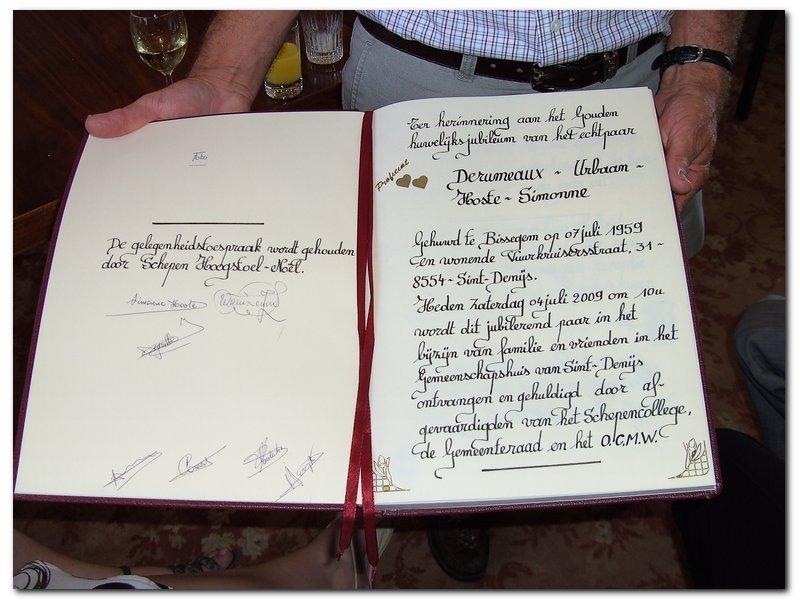 Foto
De gelegenheidstoespraak wordt gehouden
door Schepen Hoegstoel-Noël.
Simonne Hoste
Ter herinnering aan het Gouden
huwelijksjubileum van het echtpaar
Proficiat
Derumeaux - Urbaan -
Hoste - Simonne
Gehuwd te Bissegem op 07 juli 1959
en wonende Vuurkruisersstraat, 31 -
8554 - Sint-Denijs.
Heden Zaterdag 04 juli 2009 om 10u
wordt dit jubilerend paar in het
bijzijn van familie en vrienden in het
Gemeenschapshuis van Sint-Denijs
ontvangen en gehuldigd door af-
gevaardigden van het Schepencollege,
de Gemeenteraad en het O.C.M.W.